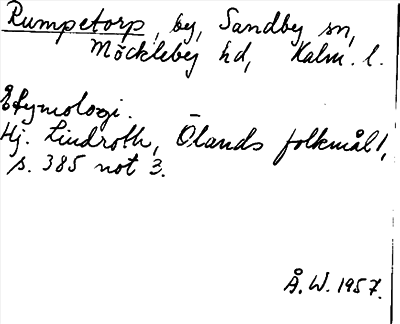 Rumpetorp, by, Sandby sn,
Möckleby hd, Kalm. l.
Etymologi.
Hj. Lindroth, Ölands folkmål 1,
s. 385 not 3.
Å. W. 1957.